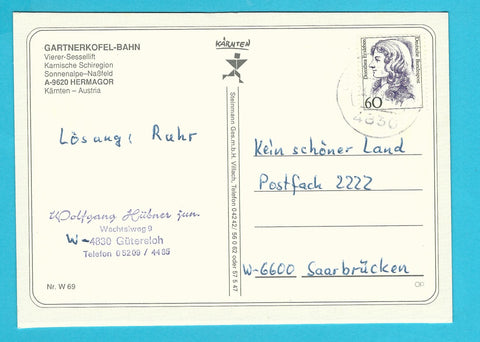 GARTNERKOFEL-BAHN
Vierer-Sessellift
Karnische Schiregion
Sonnenalpe-Naßfeld
A-9620 HERMAGOR
Kärnten – Austria
KÄRNTEN
Deutsche Bundespost
60
4830
Lösung: Ruhr
Kein schöner Land
Postfach 2222
W-6600 Saarbrücken
Wolfgang Hübner jun.
W-4830 Gütersloh
Telefon 05209 / 4485
Steinmann Ges.m.b.H. Villach, Telefon 0 42 42/ 56 0 62 oder 57 5 47
Nr. W 69